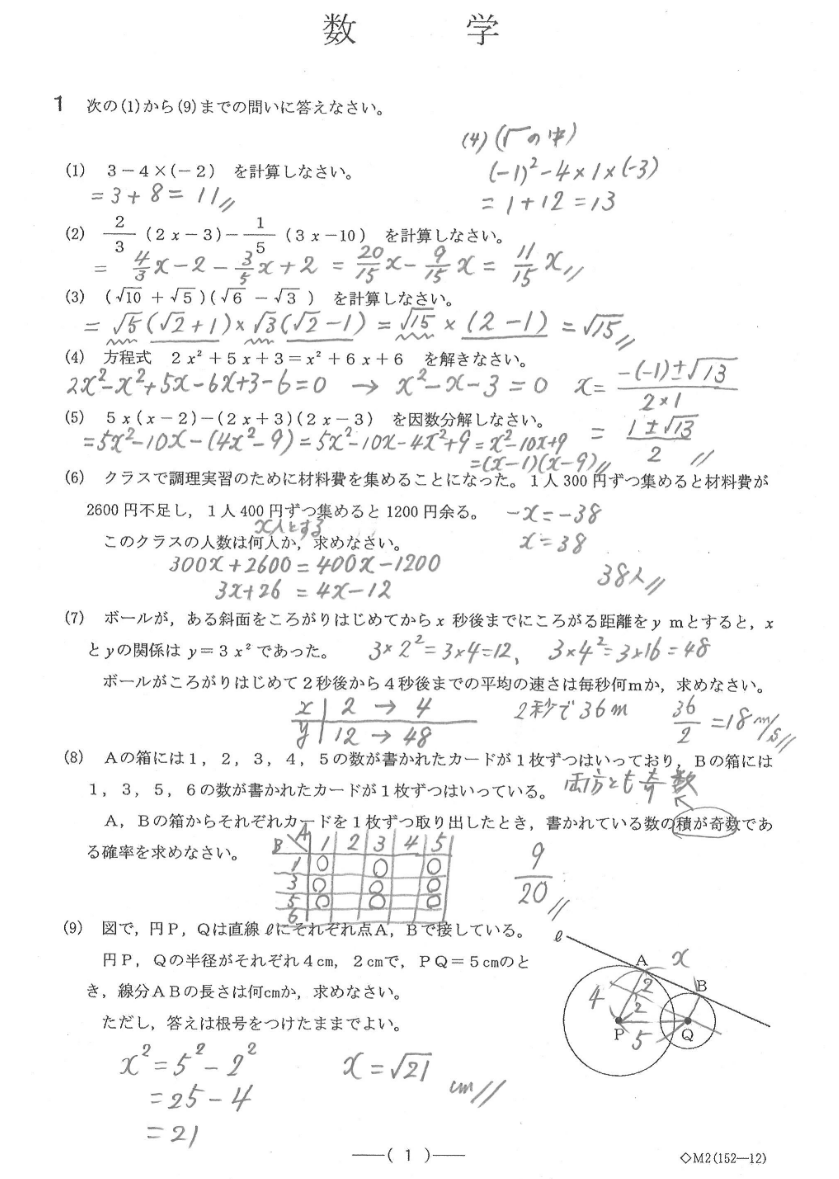 数　学
1 次の(1)から(9)までの問いに答えなさい。
(4) (√の中)
(1) 3－4×(－2) を計算しなさい。
(-1)²-4×1×(-3)
=3+8=11
=1+12=13
(2) 2/3 (2x－3)－1/5 (3x－10) を計算しなさい。
= 4/3x-2-3/5x+2 = 20/15x-9/15x = 11/15x
(3) (√10＋√5)(√6－√3) を計算しなさい。
=√5(√2+1)×√3(√2-1)=√15×(2-1)=√15
(4) 方程式 2x²＋5x＋3＝x²＋6x＋6 を解きなさい。
2x²-x²+5x-6x+3-6=0 → x²-x-3=0 x= -(-1)±√13 / 2×1
(5) 5x(x－2)－(2x＋3)(2x－3) を因数分解しなさい。
= 1±√13 / 2
=5x²-10x-(4x²-9)=5x²-10x-4x²+9=x²-10x+9
=(x-1)(x-9)
(6) クラスで調理実習のために材料費を集めることになった。1人300円ずつ集めると材料費が
2600円不足し，1人400円ずつ集めると1200円余る。
-x=-38
x人とする
このクラスの人数は何人か，求めなさい。
x=38
300x+2600=400x-1200
38人
3x+26=4x-12
(7) ボールが，ある斜面をころがりはじめてからx秒後までにころがる距離をy mとすると，x
とyの関係はy＝3x²であった。
3×2²=3×4=12, 3×4²=3×16=48
ボールがころがりはじめて2秒後から4秒後までの平均の速さは毎秒何mか，求めなさい。
x 2 → 4
2秒で36m 36/2=18m/s
y 12 → 48
(8) Aの箱には1，2，3，4，5の数が書かれたカードが1枚ずつはいっており，Bの箱には
1，3，5，6の数が書かれたカードが1枚ずつはいっている。
両方とも奇数
A，Bの箱からそれぞれカードを1枚ずつ取り出したとき，書かれている数の積が奇数であ
る確率を求めなさい。
B A 1 2 3 4 5
1 ○ ○ ○
3 ○ ○ ○
5 ○ ○ ○
6
9/20
(9) 図で，円P，Qは直線ℓにそれぞれ点A，Bで接している。
円P，Qの半径がそれぞれ4cm，2cmで，PQ＝5cmのと
き，線分ABの長さは何cmか，求めなさい。
ただし，答えは根号をつけたままでよい。
ℓ
A x
B
2
4 2
P Q
5
x²=5²-2²
x=√21 cm
=25-4
=21
―( 1 )―
◇M2(152―12)